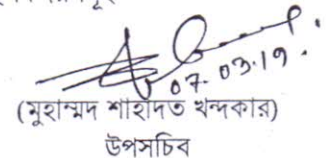 07.03.19.
(মুহাম্মদ শাহাদত খন্দকার)
উপসচিব